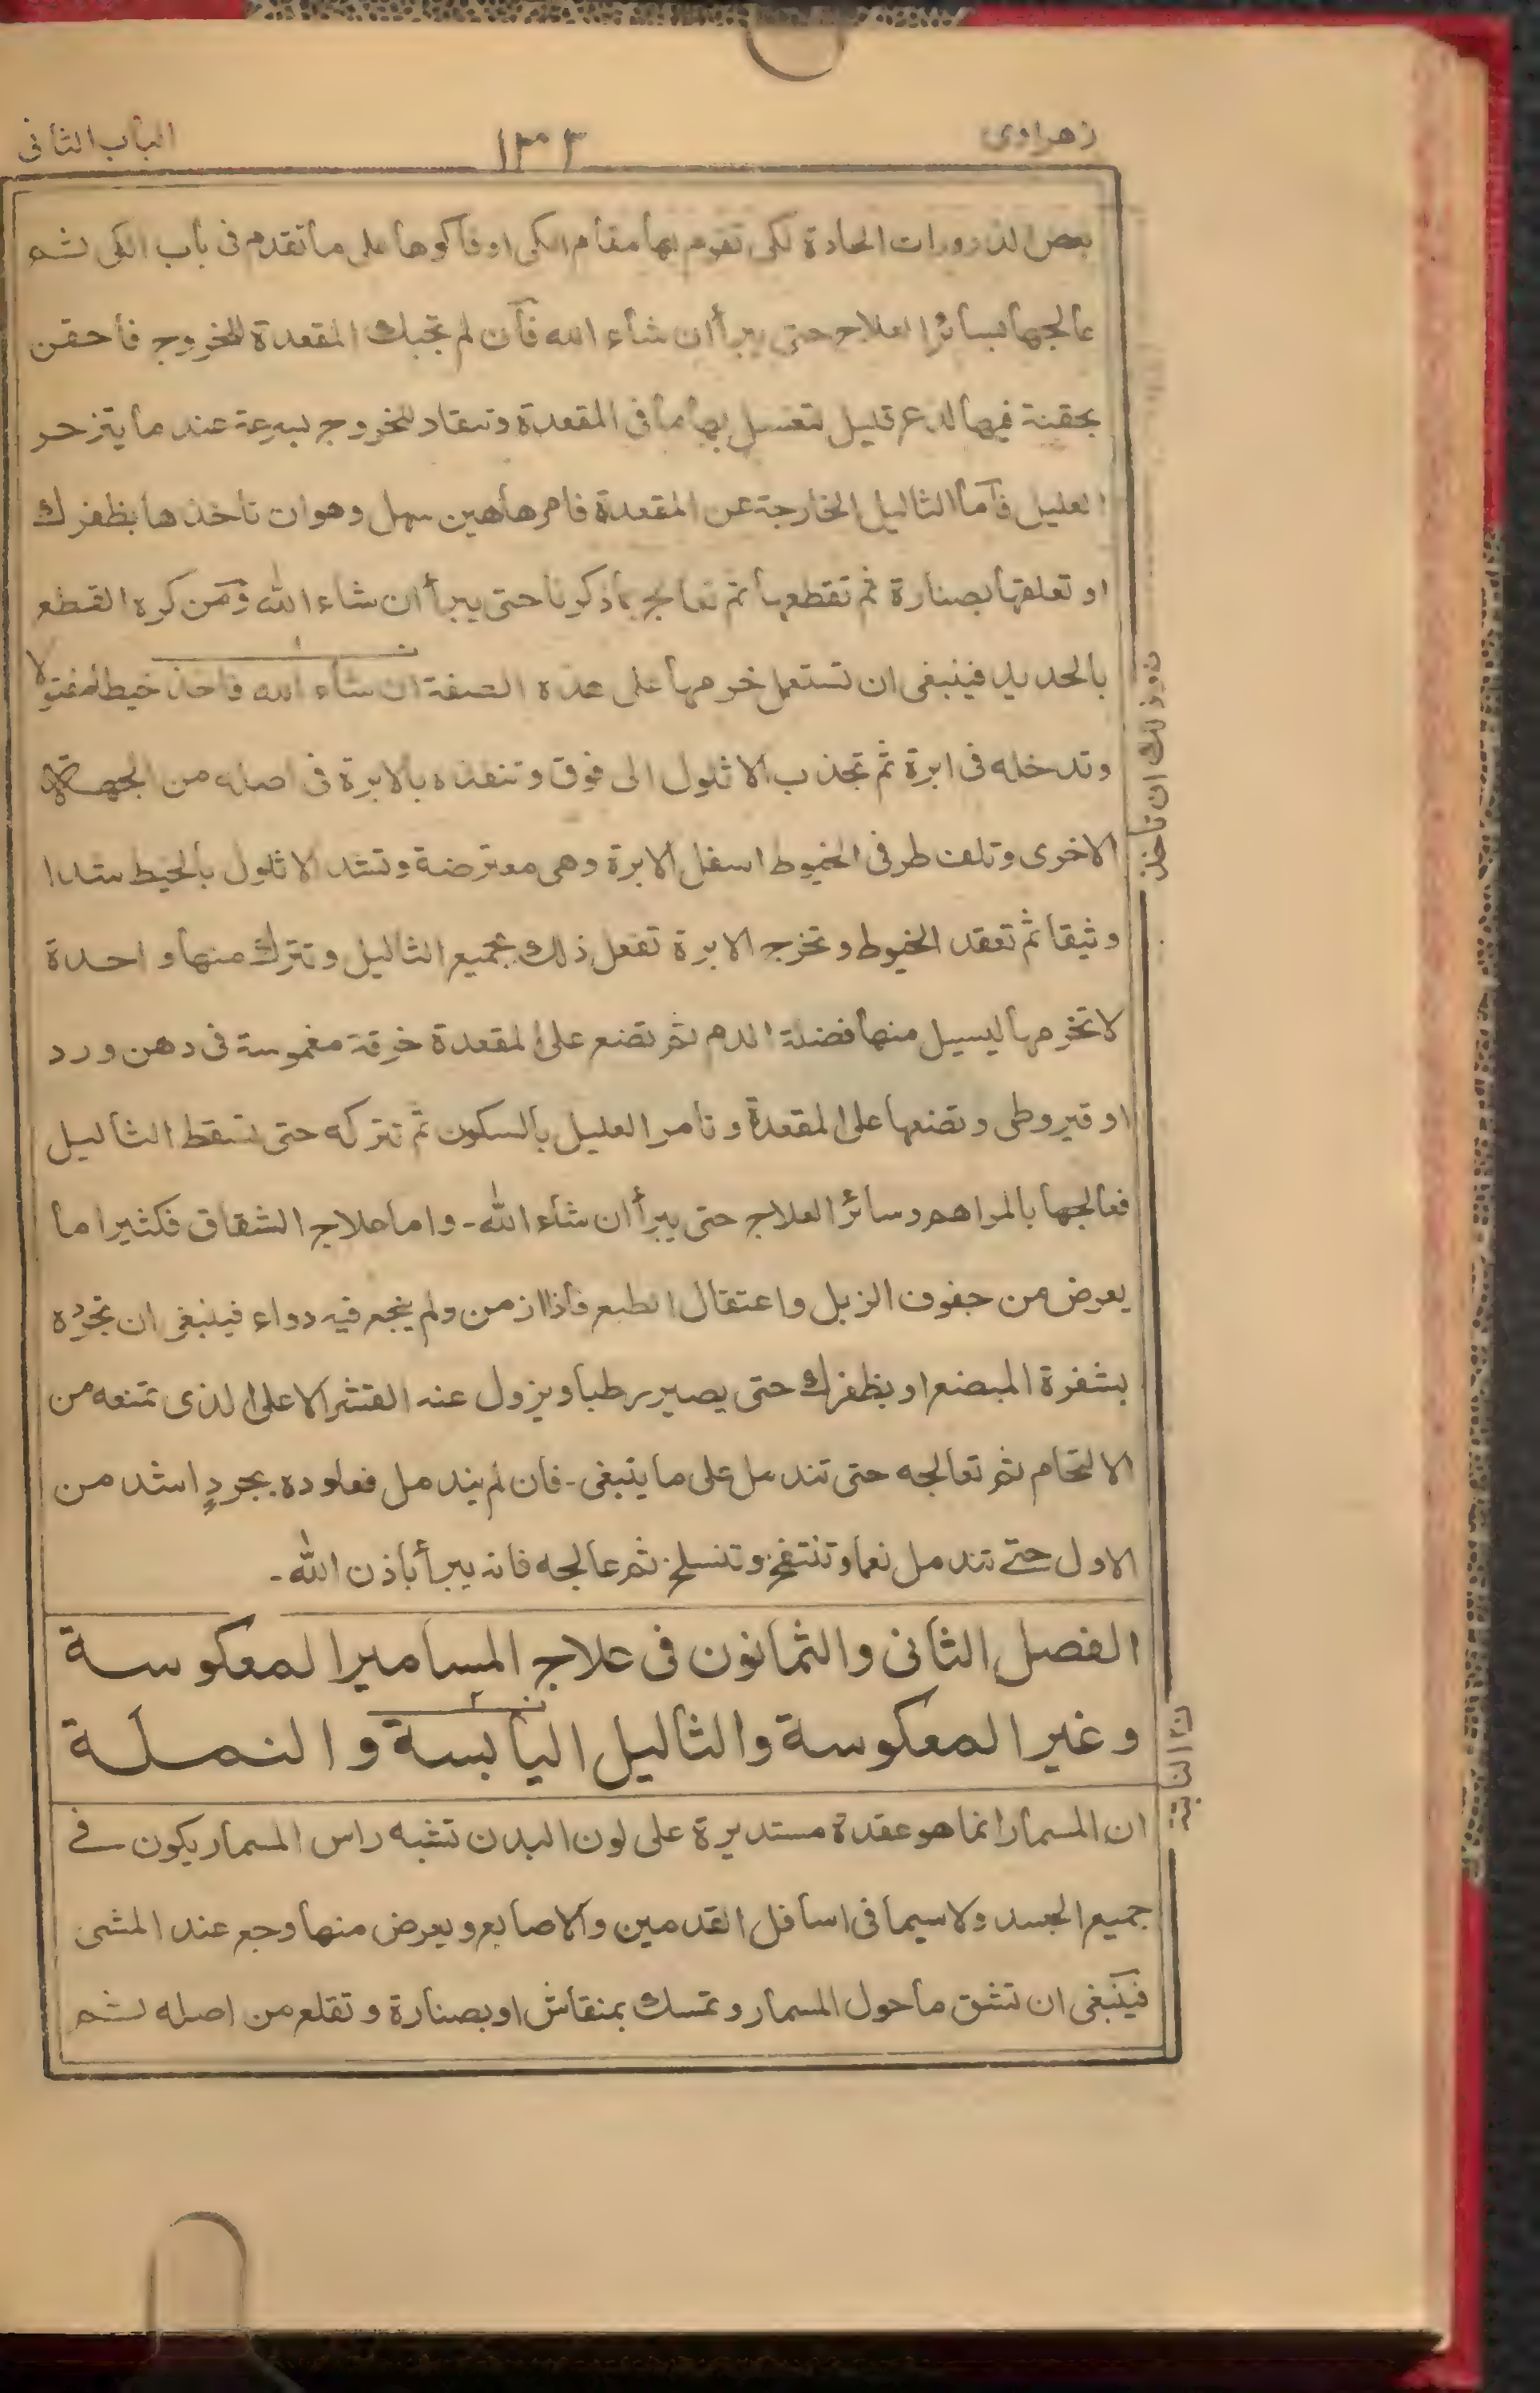 زهراوى
١٣٠٣
الباب الثانى
بعض الذرورات الحادة لكى تقوم بها مقام الكى او فاكوها على ما تقدم فى باب الكى ثم
عالجها بسائر العلاج حتى يبرأ ان شاء الله فان لم تجبك المقعدة للخروج فاحقن
بحقنة فيها لدع قليل تغسل بها ما فى المقعدة وتنقاد للخروج بسرعة عند ما يتزحر
العليل فاما الثاليل الخارجة عن المقعدة فامرها هين سهل وهو ان تاخذها بظفرك
او تعلقها بصنارة ثم تقطعها ثم تعالج بما ذكرنا حتى يبرأ ان شاء الله ومن كره القطع
بالحديد فينبغى ان تستعمل خرمها على هذه الصفة ان شاء الله فاحذ خيطا مفتولا
وتدخله فى ابرة ثم تجذب الاثلول الى فوق وتنفذه بالابرة فى اصله من الجهة
الاخرى وتلف طرفى الخيوط اسفل الابرة وهى معترضة وتشد الاثلول بالخيط شدا
وثيقا ثم تعقد الخيوط وتخرج الابرة تفعل ذلك بجميع الثاليل وتترك منها واحدة
لا تخرمها ليسيل منها فضلة الدم ثم تضع على المقعدة خرقة مغموسة فى دهن ورد
او قيروطى وتضعها على المقعدة وتامر العليل بالسكون ثم تتركه حتى تسقط الثاليل
فعالجها بالمراهم وسائر العلاج حتى يبرأ ان شاء الله - واما علاج الشقاق فكثيرا ما
يعرض من جفوف الزبل واعتقال الطبع فاذا ازمن ولم ينجع فيه دواء فينبغى ان تجرده
بشفرة المبضع او بظفرك حتى يصير رطبا ويزول عنه القشر الاعلى الذى تمنعه من
الالتحام ثم تعالجه حتى تندمل على ما ينبغى - فان لم يندمل فعاوده بجرد اشد من
الاول حتى تندمل نعما وتنتفخ وتنسلخ ثم عالجه فانه يبرأ باذن الله -
الفصل الثانى والثمانون فى علاج المسامير المعكوسة
وغير المعكوسة والثاليل اليابسة والنملة
ان المسمار انما هو عقدة مستديرة على لون البدن تشبه راس المسمار يكون فى
جميع الجسد ولا سيما فى اسافل القدمين والاصابع ويعرض منها وجع عند المشى
فينبغى ان تشق ما حول المسمار وتمسك بمنقاش او بصنارة وتقلع من اصله ثم
ن وذلك ان تاخذ